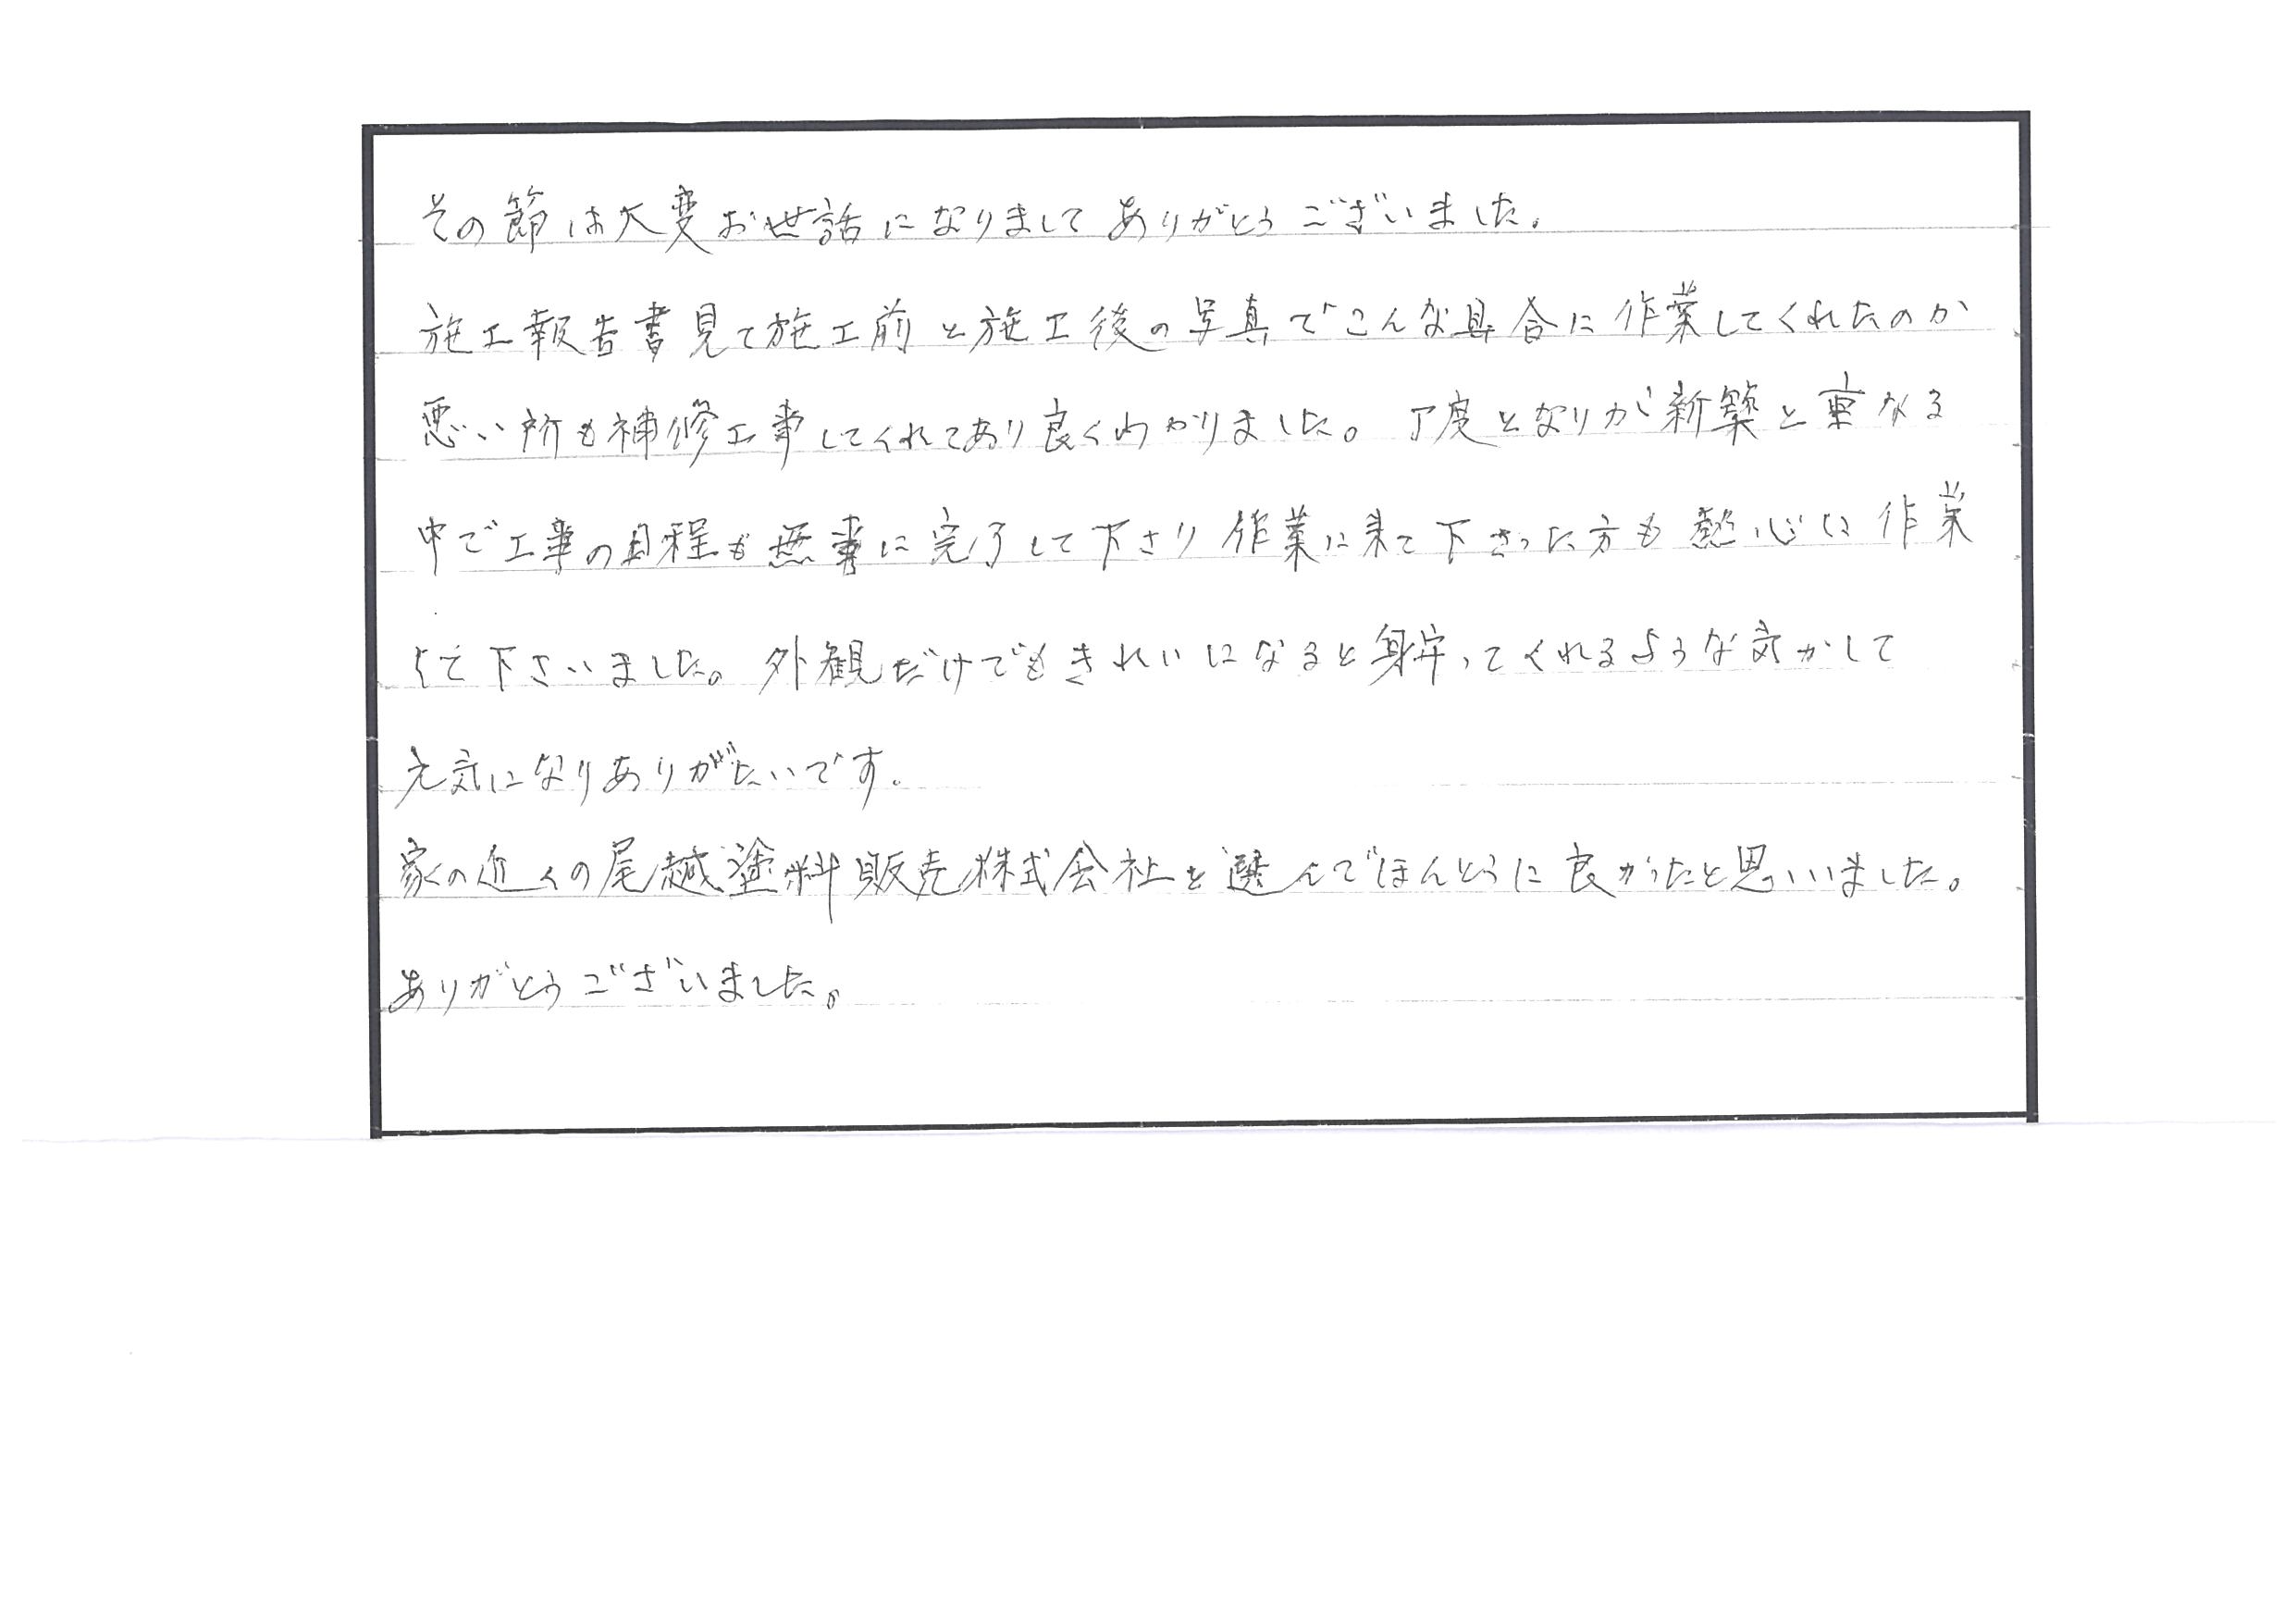 その節は大変お世話になりましてありがとうございました。
施工報告書見て施工前と施工後の写真でこんな具合に作業してくれたのか
悪い所も補修工事してくれてあり良くわかりました。丁度となりが新築と重なる
中で工事の日程も無事に完了して下さり作業に来て下さった方も熱心に作業
して下さいました。外観だけでもきれいになると身守ってくれるような気がして
元気になりありがたいです。
家の近くの尾越塗料販売株式会社を選んでほんとうに良かったと思いいました。
ありがとうございました。